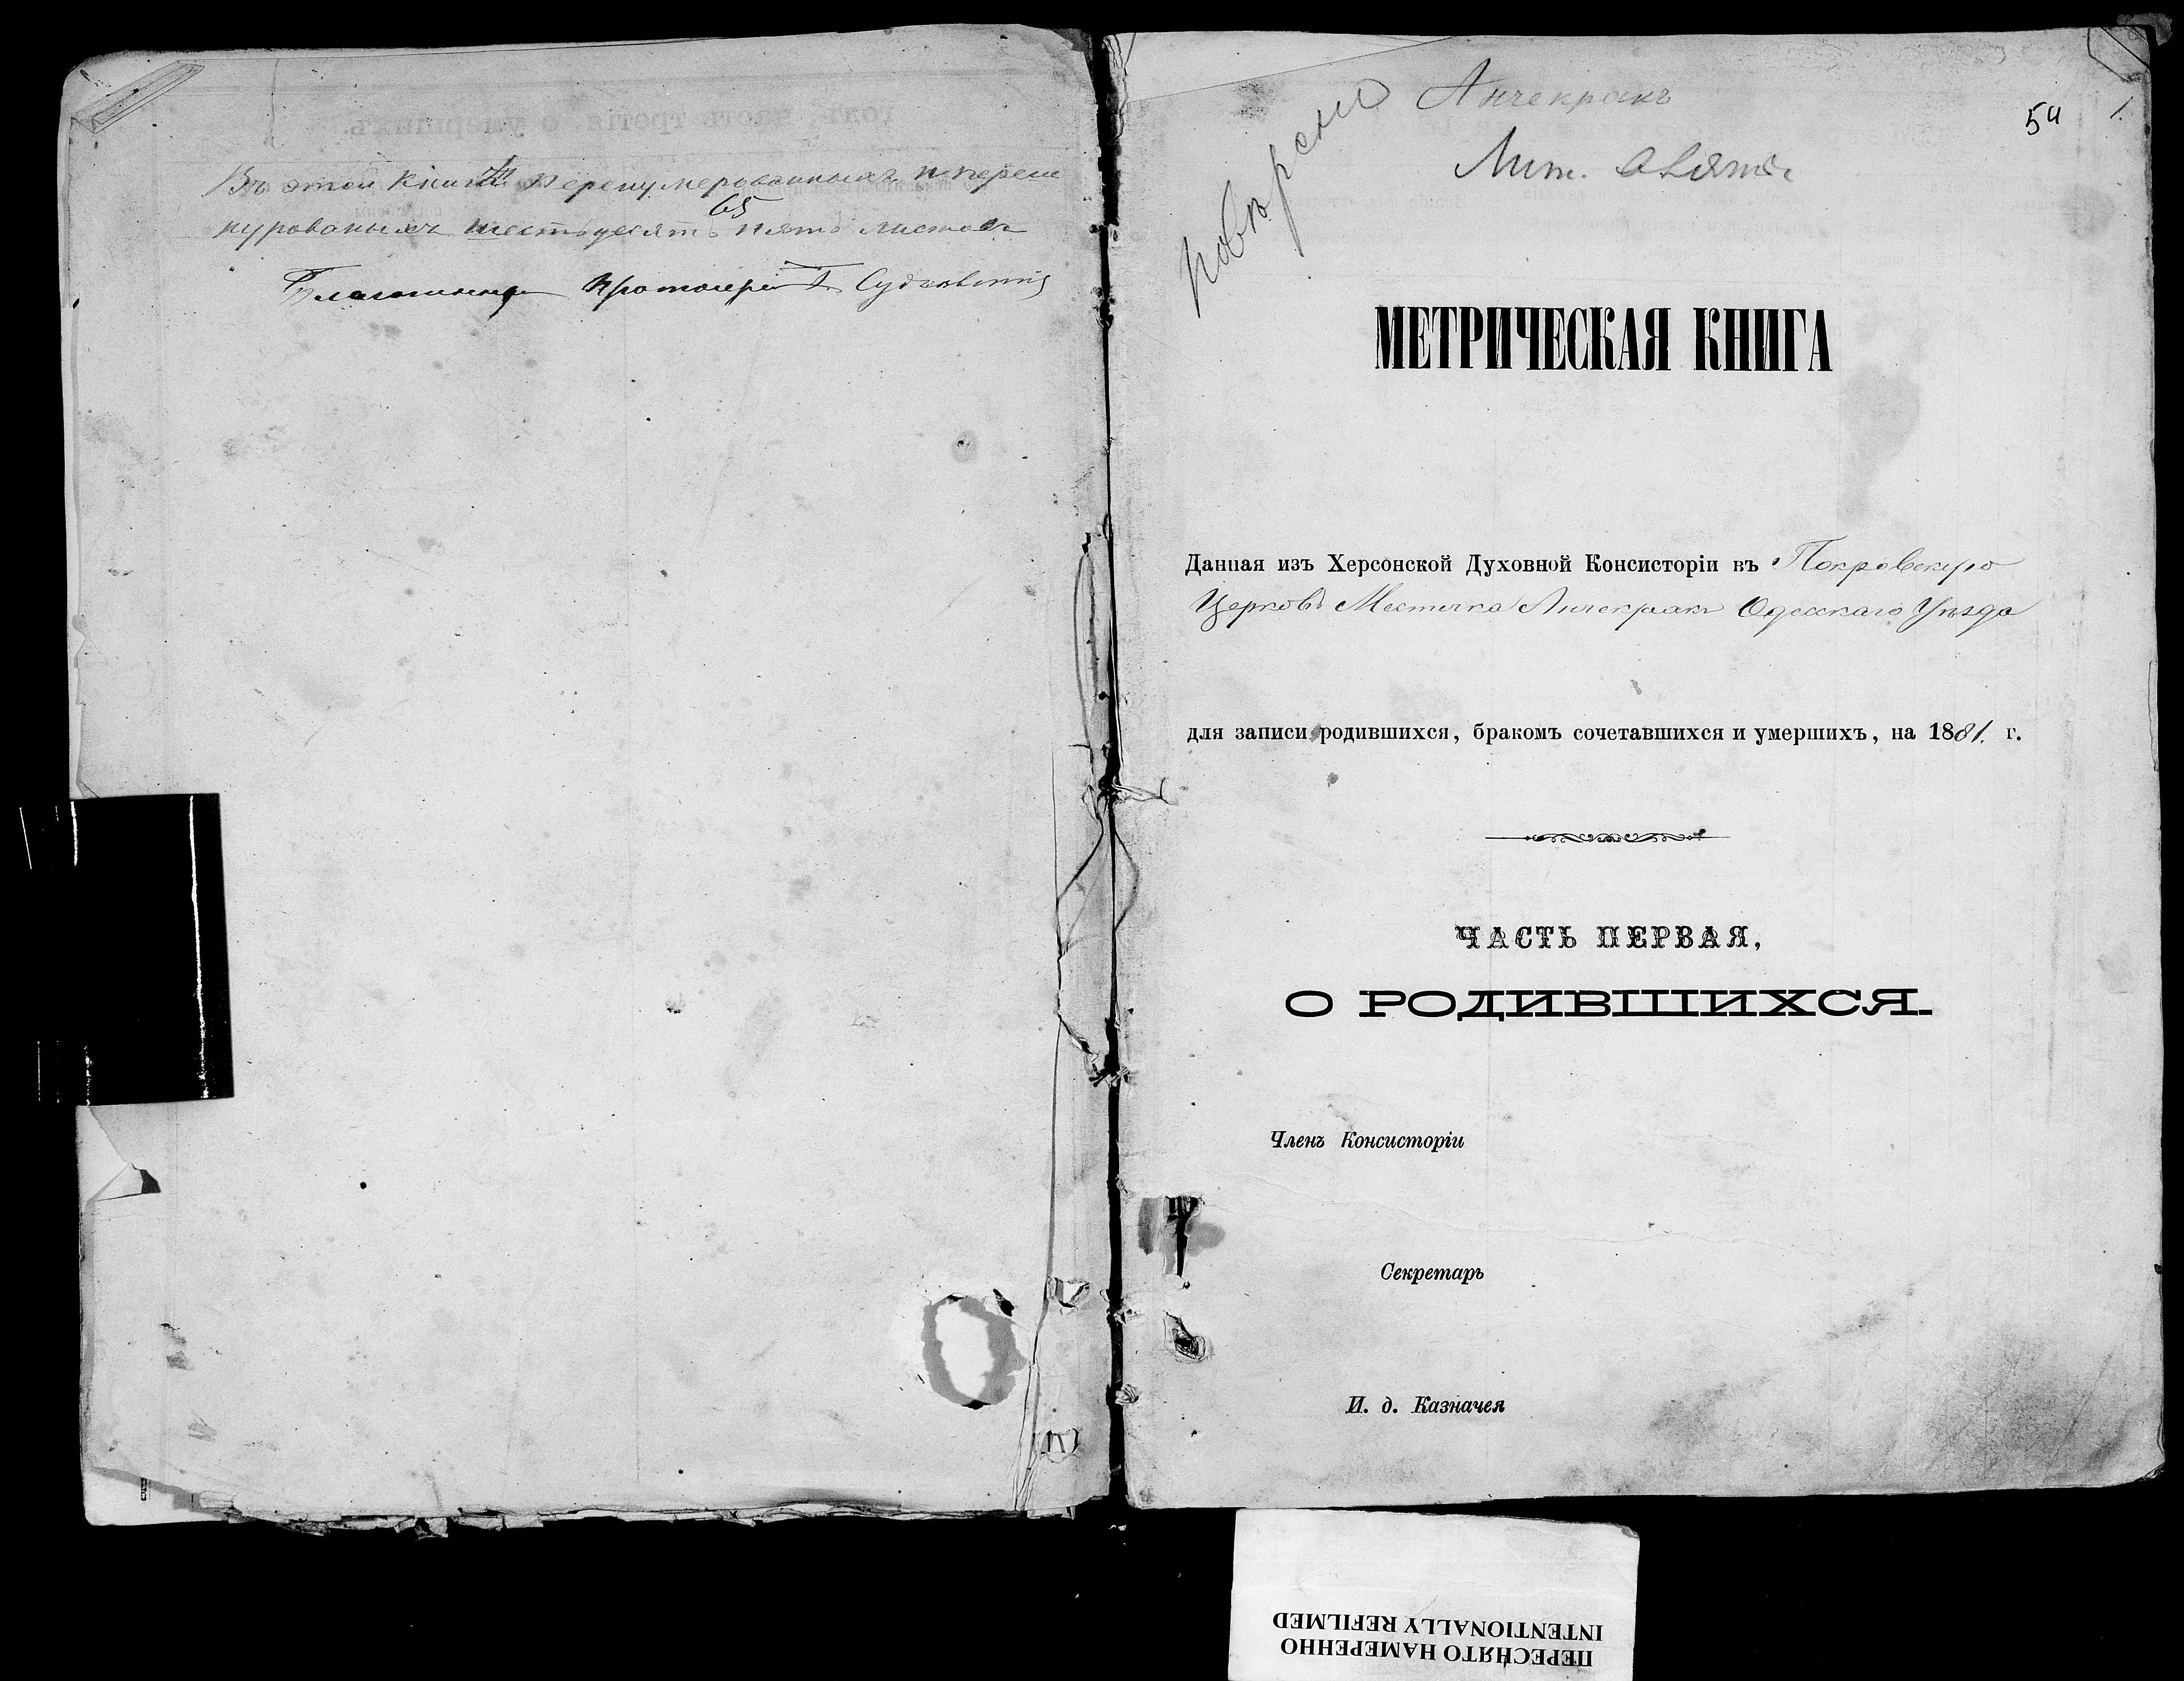 Въ этой книгѣ перенумерованныхъ и прошну
рованыхъ шестьдесятъ пять листовъ
65
Благочинный Протоіерей
Повѣрено
Анчекракъ
Лит.
54
1.
МЕТРИЧЕСКАЯ КНИГА
Данная изъ Херсонской Духовной Консисторіи въ Покровскую
Церковь Местечка Анчекракъ Одесскаго Уѣзда
для записи родившихся, бракомъ сочетавшихся и умершихъ, на 1881. г.
ЧАСТЬ ПЕРВАЯ,
О РОДИВШИХСЯ.
Членъ Консисторіи
Секретарь
И. д. Казначея
ПЕРЕСНЯТО НАМЕРЕННО
INTENTIONALLY REFILMED